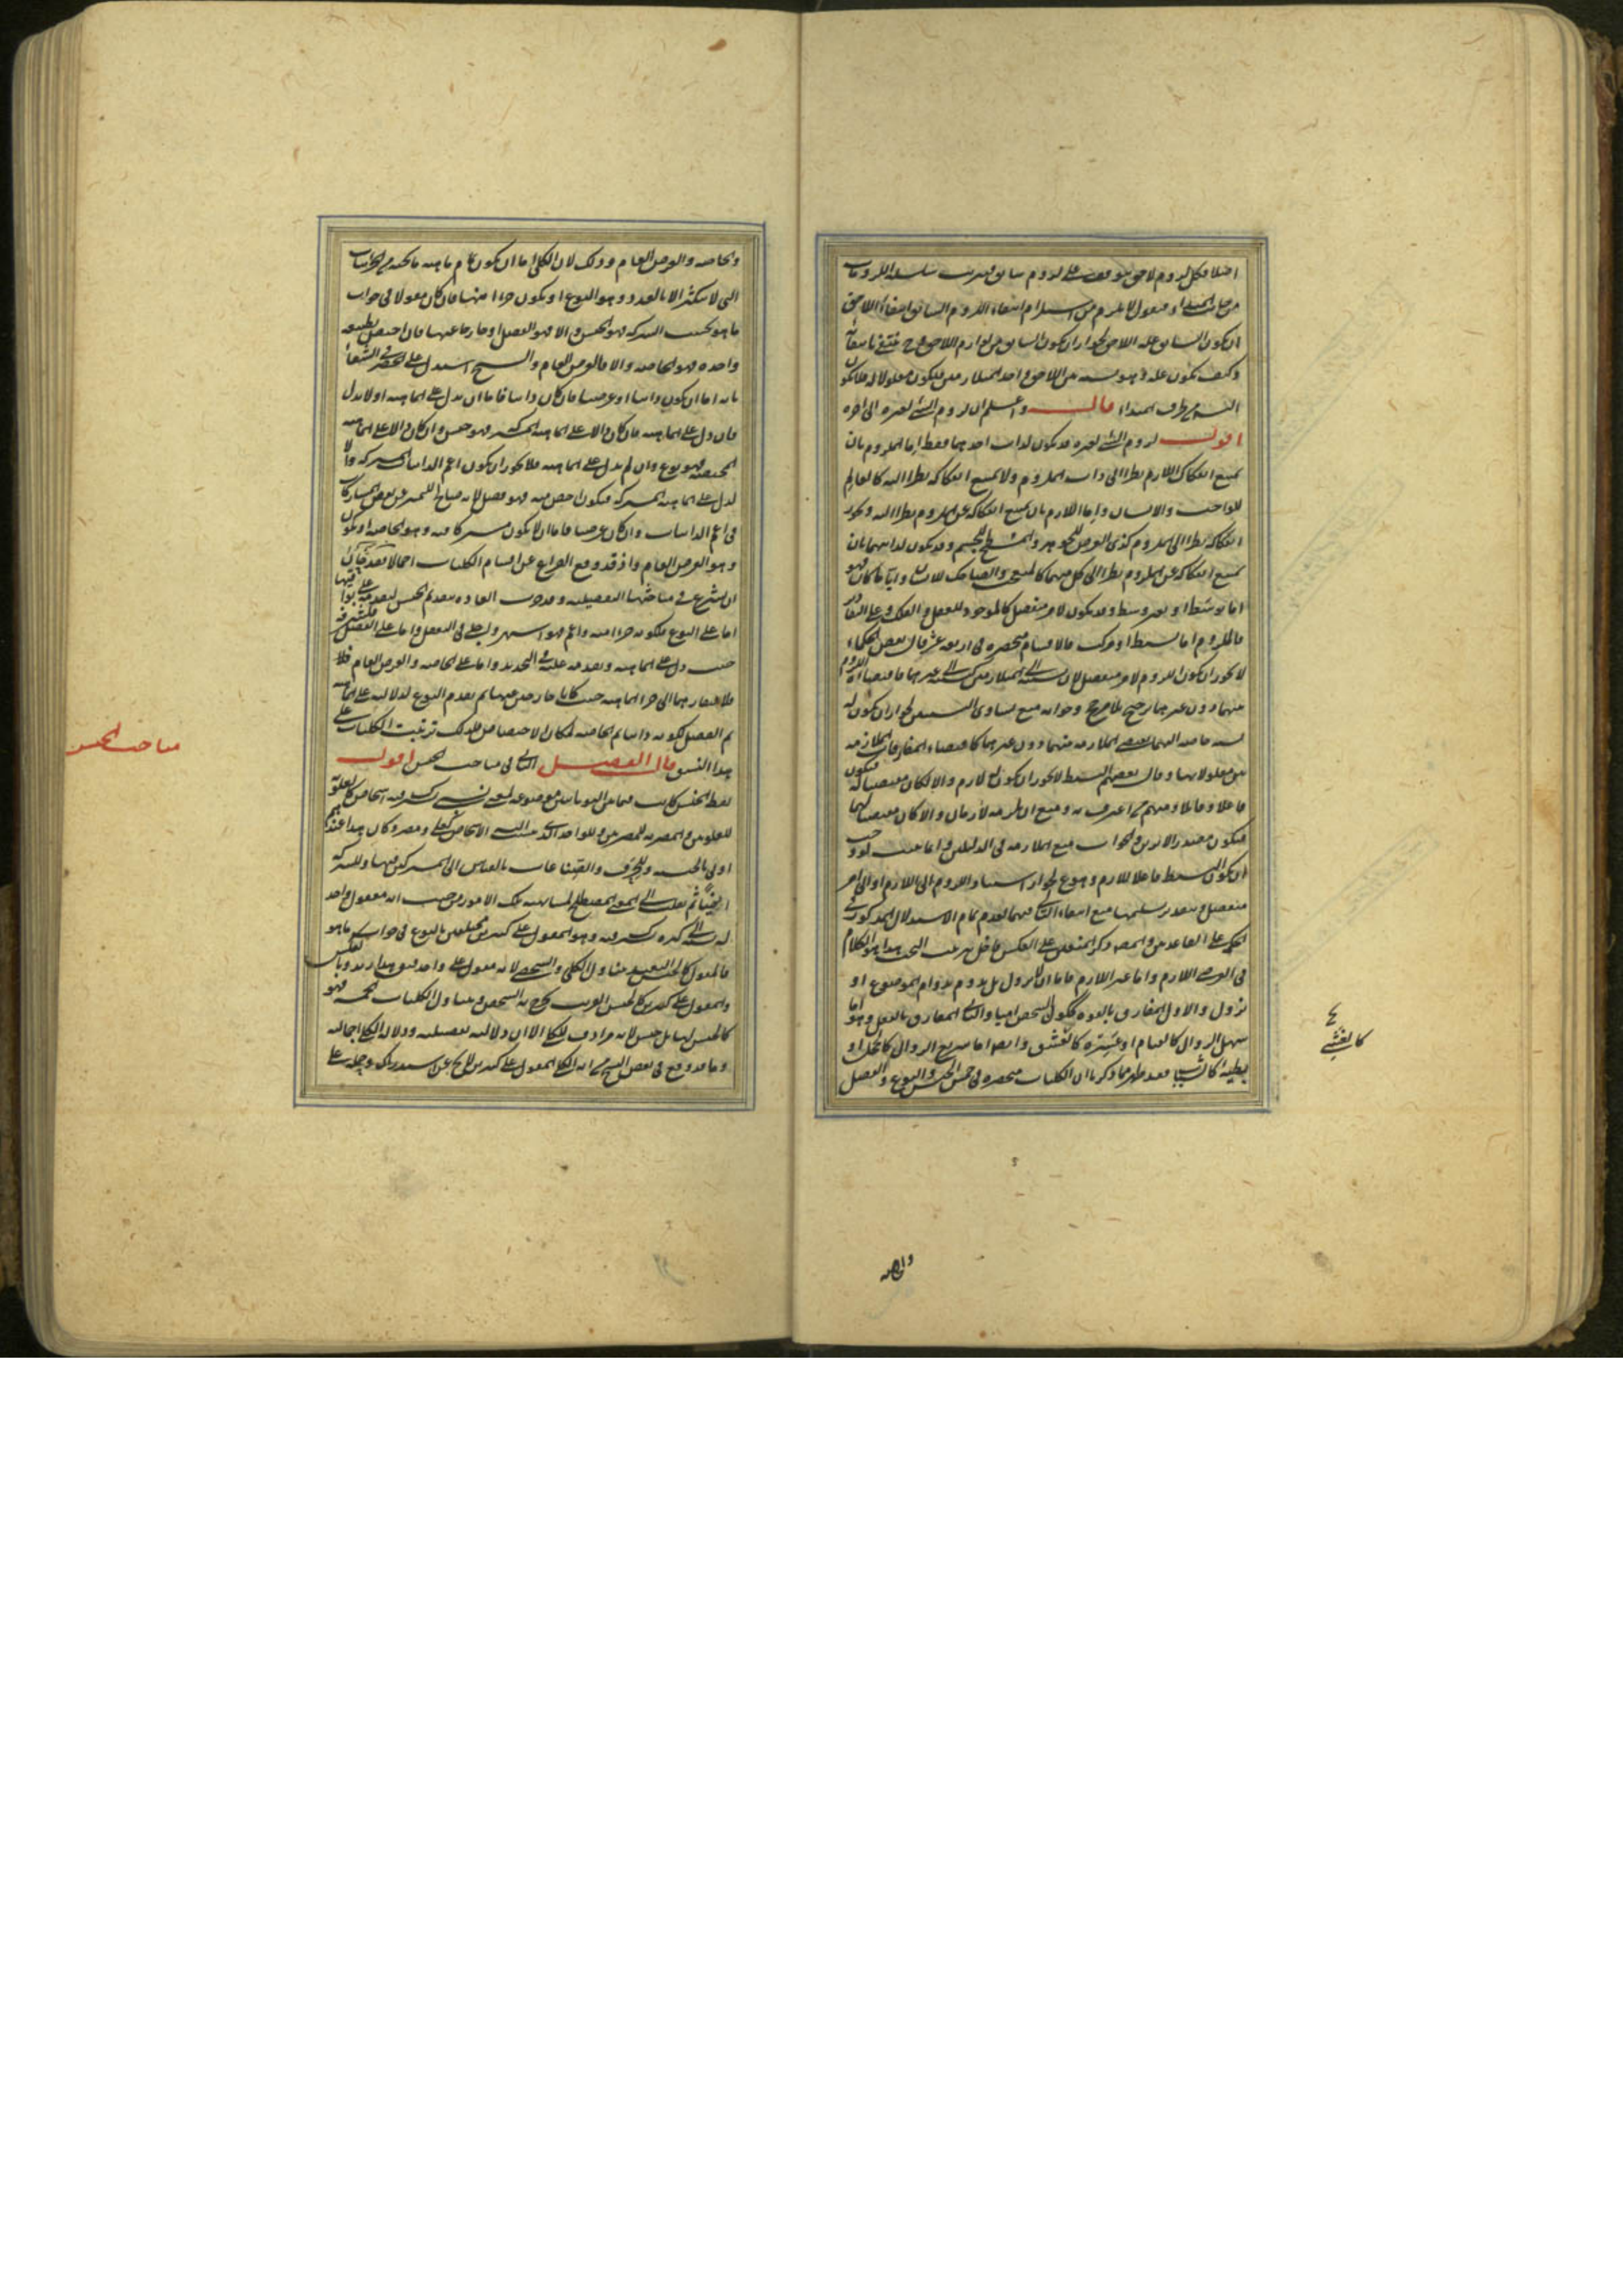 اصلا فكل لزوم لاحق موقوف على لزوم سابق فيترتب سلسلة اللزومات
من جانب المبدا و نقول لا يلزم من استلزام انتفاء اللزوم السابق انتفاء اللاحق
ان يكون السابق علة اللاحق لجواز ان يكون السابق من لوازم اللاحق فينتفي بانتفائه
وكيف يكون علة وهو نسبة بين اللاحق واحد المتلازمين فيكون معلولا له فلا يكون
التسلسل من طرف المبدا قال واعلم ان لزوم الشي لغيره الى اخره
اقول لزوم الشي لغيره قد يكون لذات احدهما فقط اما الملزوم بان
يمتنع انفكاك اللازم نظرا الى ذات الملزوم ولا يمتنع انفكاكه نظرا اليه كالعالم
للواجب والانسان واما اللازم بان يمتنع انفكاكه عن الملزوم نظرا اليه ويجوز
انفكاكه نظرا الى الملزوم كذي العرض للجوهر والسطح للجسم وقد يكون لذاتيهما بان
يمتنع انفكاكه عن الملزوم نظرا الى كل منهما كالمتعجب والضاحك للانسان وايا ما كان فهو
اما بوسط او بغير وسط وقد يكون لامر منفصل كالموجود للعقل والفلك وعلى التقادير
فالملزوم اما بسيط او مركب فالاقسام منحصرة في اربعة عشر قال بعض الحكماء
لا يجوز ان يكون اللزوم لامر منفصل لان نسبته الى المتلازمين كنسبته الى غيرهما فاقتضاؤه اللزوم
منهما دون غيرهما ترجيح بلا مرجح وجوابه منع تساوي النسبتين لجواز ان يكون له
نسبة خاصة اليهما يقتضي الملازمة بينهما دون غيرهما كاقتضاء المفارقات الملازمة
بين معلولاتها وقال بعضهم البسيط لا يجوز ان يكون له لازم والا لكان مقتضيا له فيكون
فاعلا وقابلا ومنهم من اعترف به ومنع ان يلزمه لازمان والا لكان مقتضيا لهما
فيكون مصدر الاثرين والجواب منع الملازمة في الدليلين وانما يتمان لو وجب
ان يكون البسيط فاعلا للازم وهو ممنوع لجواز استناد اللزوم الى اللازم او الى امر
منفصل وبتقدير تسليمها منع انتفاء التالي فيهما لعدم تمام الاستدلال المذكور في
الحكمة على القاعدتين والمصنف ذكر المنعين على العكس فاخل بترتيب البحث هذا هو الكلام
في العرضي اللازم واما غير اللازم فاما ان لا يزول بل يدوم بدوام الموضوع او
يزول والاول المفارق بالقوة ككون الشخص اميا والثاني المفارق بالفعل وهو اما
سهل الزوال كالقيام او عسيره كالعشق وايضا اما سريع الزوال كالخجل او
بطيئه كالشباب فقد ظهر مما ذكرنا ان الكليات منحصرة في خمس الجنس والنوع والفصل
كالغشي
والخاصة
والخاصة والعرض العام وذلك لان الكلي اما ان يكون تمام ماهية ما تحته من الجزئيات
التي لا يتكثر الا بالعدد وهو النوع او يكون جزءا منها فان كان مقولا في جواب
ما هو بحسب الشركة فهو الجنس والا فهو الفصل او خارجا عنها فان اختص بطبيعة
واحدة فهو الخاصة والا فالعرض العام والشيخ استدل على الحصر في الشفاء
بانه اما ان يكون ذاتيا او عرضيا فان كان ذاتيا فاما ان يدل على الماهية او لا يدل
فان دل على الماهية فان كان دالا على الماهية المشتركة فهو جنس وان كان دالا على الماهية
المختصة فهو نوع وان لم يدل على الماهية فلا يجوز ان يكون اعم الذاتيات المشتركة والا
لدل على الماهية المشتركة فيكون اخص منه فهو فصل لانه صالح للتمييز عن بعض المشاركات
في اعم الذاتيات وان كان عرضيا فاما ان لا يكون مشتركا فيه وهو الخاصة او يكون
وهو العرض العام واذ قد وقع الفراغ عن اقسام الكليات اجمالا فقد حان
ان نشرع في مباحثها التفصيلية وقد جرت العادة بتقديم الجنس لتقدمه على بواقيها
اما على النوع فلكونه جزءا منه واعم فهو اشهر واجلى في العقل واما على الفصل فلشرفه
حيث دل على الماهية وتقدمه عليه في التحديد واما على الخاصة والعرض العام فلا
فلافتقارهما الى جزء الماهية حيث كانا خارجين عنها ثم تقدم النوع لدلالته على الماهية
ثم الفصل لكونه ذاتيا ثم الخاصة لمكان الاختصاص فلذلك ترتبت الكليات على
هذا النسق قال الفصل الثاني في مباحث الجنس اقول
مباحث الجنس
لفظ الجنس كانت فيما بين اليونانيين موضوعة لمعنى نسبي يشترك فيه اشخاص كالعلوية
للعلويين والمصرية للمصريين وللواحد الذي ينسب اليه الاشخاص كعلي ومصر وكان هذا عندهم
اولى بالجنسية وللحرف والصناعات بالقياس الى المشتركين فيها وللشركة
ايضا ثم نقل الى المعنى المصطلح لمشابهته تلك الامور من حيث انه معقول واحد
له نسبة الى كثرة يشترك فيه وهو المقول على كثيرين مختلفين بالنوع في جواب ما هو
فالمقول كالجنس البعيد يتناول الكلي والشخصي لانه مقول على واحد فيقال هذا زيد وبالعكس
والمقول على كثيرين كالجنس القريب يخرج به الشخص ويتناول الكليات الخمسة فهو
كالجنس لها بل جنس لانه مرادف للكلي الا ان دلالته تفصيلية ودلالة الكلي اجمالية
وما قد وقع في بعض النسخ من انه الكلي المقول على كثيرين لا يخ عن استدراك وحمله على